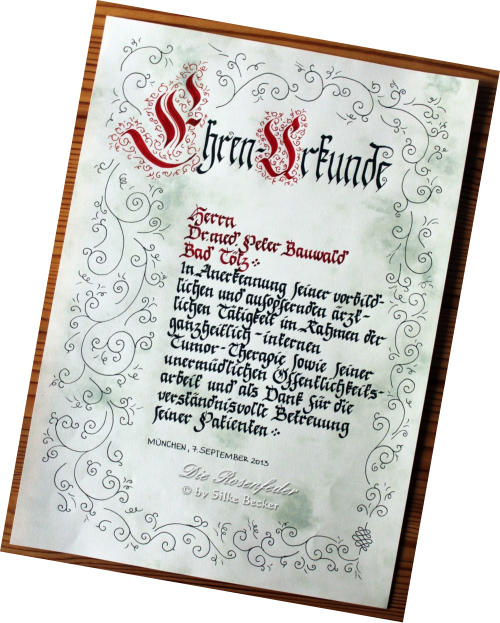 Ehren-Urkunde
Herrn
Dr. med. Peter Bauwald
Bad Tölz
in Anerkennung seiner vorbild-
lichen und aufopfernden ärzt-
lichen Tätigkeit im Rahmen der
ganzheitlich-internen
Tumor-Therapie sowie seiner
unermüdlichen Öffentlichkeits-
arbeit und als Dank für die
verständnisvolle Betreuung
seiner Patienten
MÜNCHEN, 7. SEPTEMBER 2013
Die Rosenfeder
© by Silke Becker